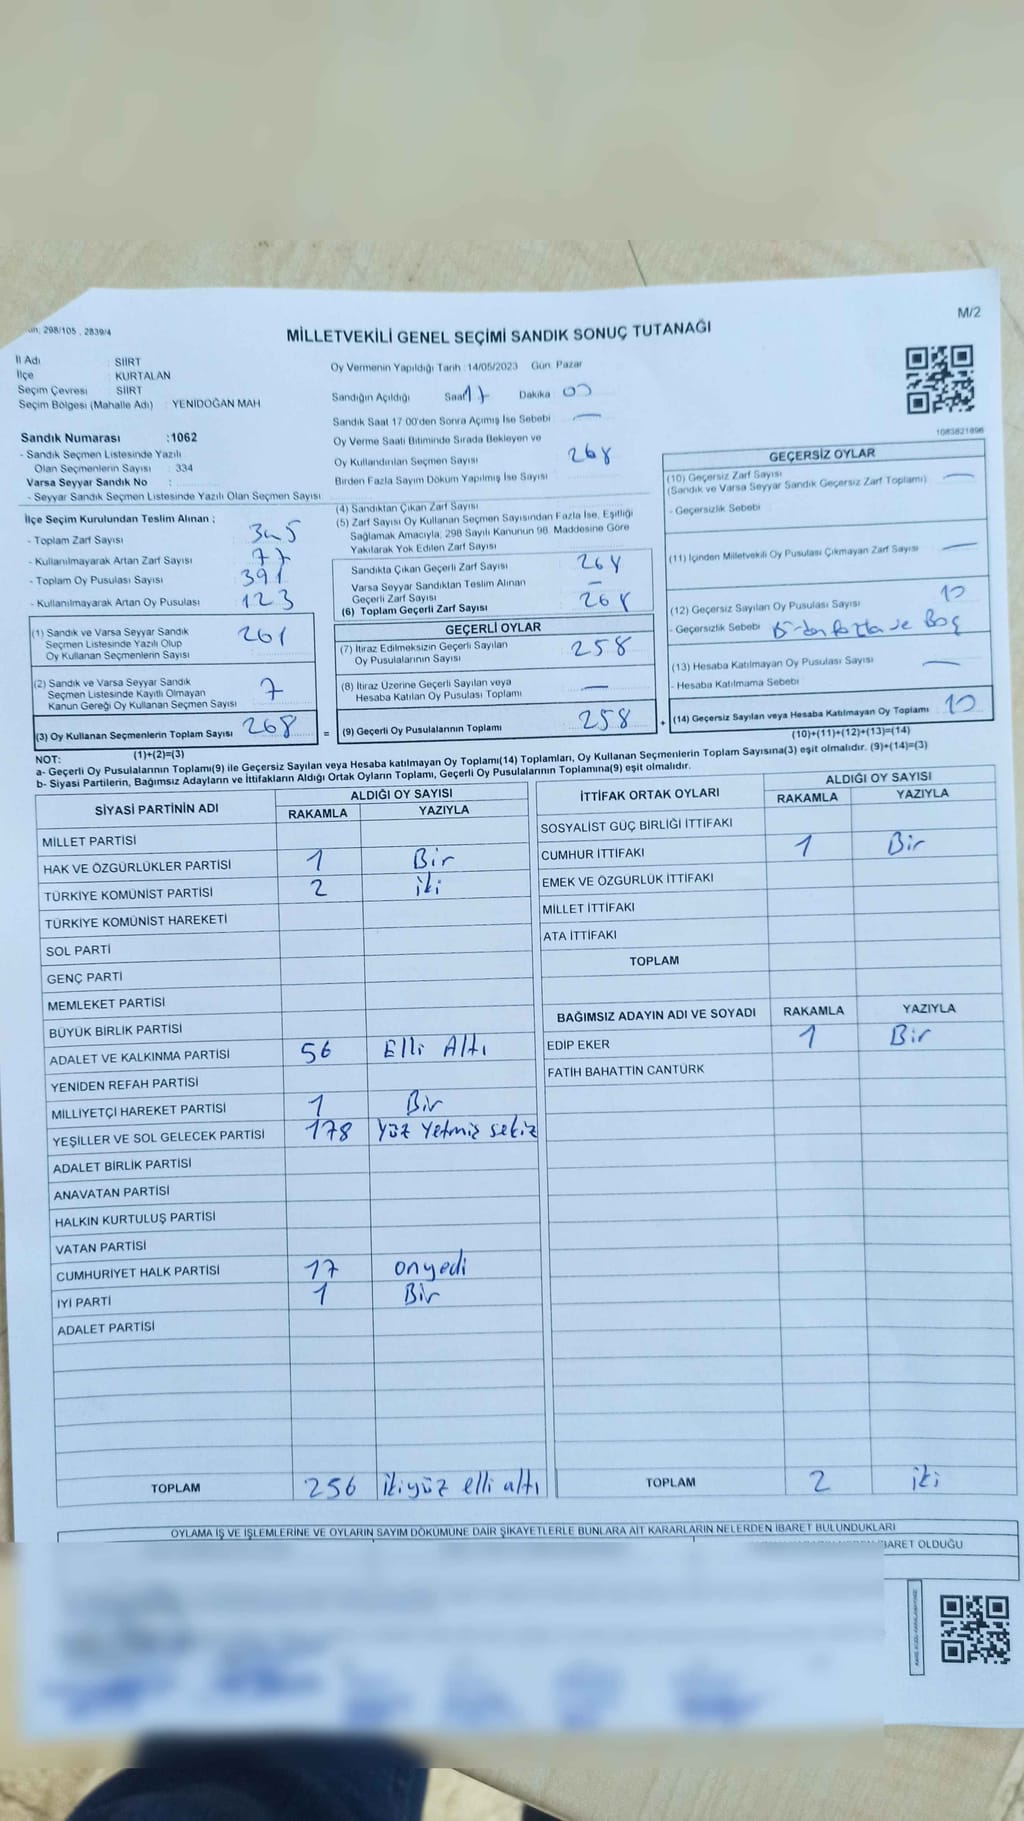 298/105 , 2839/4
M/2
MİLLETVEKİLİ GENEL SEÇİMİ SANDIK SONUÇ TUTANAĞI
İl Adı : SİİRT
İlçe : KURTALAN
Seçim Çevresi : SİİRT
Seçim Bölgesi (Mahalle Adı) : YENİDOĞAN MAH
Sandık Numarası :1062
- Sandık Seçmen Listesinde Yazılı
Olan Seçmenlerin Sayısı : 334
Varsa Seyyar Sandık No :
- Seyyar Sandık Seçmen Listesinde Yazılı Olan Seçmen Sayısı
Oy Vermenin Yapıldığı Tarih :14/05/2023 Gün: Pazar
Sandığın Açıldığı Saat 17 Dakika 00
Sandık Saat 17:00'den Sonra Açımış İse Sebebi —
Oy Verme Saati Bitiminde Sırada Bekleyen ve
Oy Kullandırılan Seçmen Sayısı 268
Birden Fazla Sayım Döküm Yapılmış İse Sayısı
1083821896
İlçe Seçim Kurulundan Teslim Alınan ;
- Toplam Zarf Sayısı 345
- Kullanılmayarak Artan Zarf Sayısı 77
- Toplam Oy Pusulası Sayısı 391
- Kullanılmayarak Artan Oy Pusulası 123
(1) Sandık ve Varsa Seyyar Sandık
Seçmen Listesinde Yazılı Olup
Oy Kullanan Seçmenlerin Sayısı 261
(2) Sandık ve Varsa Seyyar Sandık
Seçmen Listesinde Kayıtlı Olmayan
Kanun Gereği Oy Kullanan Seçmen Sayısı 7
(3) Oy Kullanan Seçmenlerin Toplam Sayısı 268 =
(1)+(2)=(3)
(4) Sandıktan Çıkan Zarf Sayısı
(5) Zarf Sayısı Oy Kullanan Seçmen Sayısından Fazla İse, Eşitliği
Sağlamak Amacıyla; 298 Sayılı Kanunun 98. Maddesine Göre
Yakılarak Yok Edilen Zarf Sayısı
Sandıkta Çıkan Geçerli Zarf Sayısı 268
Varsa Seyyar Sandıktan Teslim Alınan
Geçerli Zarf Sayısı —
(6) Toplam Geçerli Zarf Sayısı 268
GEÇERLİ OYLAR
(7) İtiraz Edilmeksizin Geçerli Sayılan
Oy Pusulalarının Sayısı 258
(8) İtiraz Üzerine Geçerli Sayılan veya
Hesaba Katılan Oy Pusulası Toplamı —
(9) Geçerli Oy Pusulalarının Toplamı 258 +
GEÇERSİZ OYLAR
(10) Geçersiz Zarf Sayısı —
(Sandık ve Varsa Seyyar Sandık Geçersiz Zarf Toplamı)
- Geçersizlik Sebebi
(11) İçinden Milletvekili Oy Pusulası Çıkmayan Zarf Sayısı —
(12) Geçersiz Sayılan Oy Pusulası Sayısı 10
- Geçersizlik Sebebi Birden fazla ve Boş
(13) Hesaba Katılmayan Oy Pusulası Sayısı —
- Hesaba Katılmama Sebebi
(14) Geçersiz Sayılan veya Hesaba Katılmayan Oy Toplamı 10
(10)+(11)+(12)+(13)=(14)
NOT:
a- Geçerli Oy Pusulalarının Toplamı(9) ile Geçersiz Sayılan veya Hesaba katılmayan Oy Toplamı(14) Toplamları, Oy Kullanan Seçmenlerin Toplam Sayısına(3) eşit olmalıdır. (9)+(14)=(3)
b- Siyasi Partilerin, Bağımsız Adayların ve İttifakların Aldığı Ortak Oyların Toplamı, Geçerli Oy Pusulalarının Toplamına(9) eşit olmalıdır.
SİYASİ PARTİNİN ADI
ALDIĞI OY SAYISI
RAKAMLA YAZIYLA
MİLLET PARTİSİ
HAK VE ÖZGÜRLÜKLER PARTİSİ 1 Bir
TÜRKİYE KOMÜNİST PARTİSİ 2 iki
TÜRKİYE KOMÜNİST HAREKETİ
SOL PARTİ
GENÇ PARTİ
MEMLEKET PARTİSİ
BÜYÜK BİRLİK PARTİSİ
ADALET VE KALKINMA PARTİSİ 56 Elli Altı
YENİDEN REFAH PARTİSİ
MİLLİYETÇİ HAREKET PARTİSİ 1 Bir
YEŞİLLER VE SOL GELECEK PARTİSİ 178 Yüz Yetmiş sekiz
ADALET BİRLİK PARTİSİ
ANAVATAN PARTİSİ
HALKIN KURTULUŞ PARTİSİ
VATAN PARTİSİ
CUMHURİYET HALK PARTİSİ 17 onyedi
İYİ PARTİ 1 Bir
ADALET PARTİSİ
TOPLAM 256 ikiyüz elli altı
İTTİFAK ORTAK OYLARI
ALDIĞI OY SAYISI
RAKAMLA YAZIYLA
SOSYALİST GÜÇ BİRLİĞİ İTTİFAKI
CUMHUR İTTİFAKI 1 Bir
EMEK VE ÖZGÜRLÜK İTTİFAKI
MİLLET İTTİFAKI
ATA İTTİFAKI
TOPLAM
BAĞIMSIZ ADAYIN ADI VE SOYADI RAKAMLA YAZIYLA
EDİP EKER 1 Bir
FATİH BAHATTİN CANTÜRK
TOPLAM 2 iki
OYLAMA İŞ VE İŞLEMLERİNE VE OYLARIN SAYIM DÖKÜMÜNE DAİR ŞİKAYETLERLE BUNLARA AİT KARARLARIN NELERDEN İBARET BULUNDUKLARI
İBARET OLDUĞU